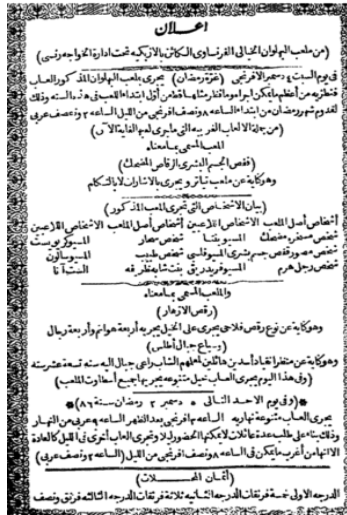 اعلان
(من ملعب البهلوان الخيالى الفرنساوى الكائن بالازبكيه تحت ادارة الخواجه رنسى)
فى يوم السبت ٤ دسمبر الافرنجى (غرة رمضان) يجرى بملعب البهلوان المذكور العاب
فنطزيه من أعظم ما يمكن اجراه وما قط رمثلها قط من أول ابتداء اللعب فى هذه السنه وذلك
لقدوم شهر رمضان من ابتداء الساعه ٨ ونصف افرنجى من الليل الساعه ٢ ونصف عربى
(من جملة الالعاب الغريبه التى ما جرى لعبها لغاية الآن)
الملعب المسمى بما معناه
(قفص الجسم البشرى الرقاص المضحك)
وهو كاية عن ملعب تياترو ويجرى بالاشاران لا بالتكلم
(بيان الاشخاص التى تجرى اللعب المذكور)
أشخاص أصل الملعب الاشخاص اللاعبين أشخاص أصل الملعب الاشخاص اللاعبين
شخص مسخره مضحك المسيو بفنا شخص سحار المسيو كريوست
شخص مصور قفص جسم بشرى المسيو فلسى شخص طبيب المسيو سالون
شخص رجل هرم المسيو فريدريق بنت شابه ظريفه الست آنا
والملعب المسمى بما معناه
(رقص الازهار)
وهو كاية عن نوع رقص فلاحى يجرى على الخيل يجريه أربعة هوانم وأربعة رجال
(دباع جبال أطلس)
وهو كاية عن منظر انقياد أسدين هائلين لمعلمهم الشاب راعى جبال البه سنه تسعة عشر سنه
(وفى هذا اليوم يجرى العاب خيل متنوعه يجريها جميع أسطاوت الملعب)
(وفى يوم الاحد التالى دسمبر ٢ رمضان سنة ٨٦)
يجرى العاب متنوعة نهاريه الساعه ٣ افرنجى بعد الظهر الساعه ٩ عربى من النهار
وذلك بناء على طلب عدة عائلات لا يمكنها الحضور ليلا وتجرى العاب أخرى فى الليل كالعادة
الا انها من أغرب ما يمكن فى الساعه ٨ ونصف افرنجى من الليل (الساعه ٢ ونصف عربى)
(أثمان المحلات)
الدرجه الاولى خمسة فرنقات الدرجه الثانيه ثلاثة فرنقات الدرجه الثالثه فرنق ونصف